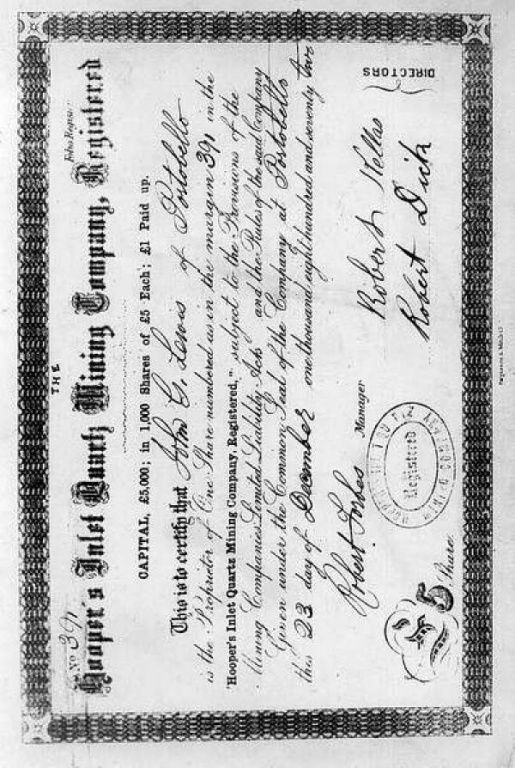 No 391
THE
Hooper's Inlet Quartz Mining Company, Registered
CAPITAL, £5,000; in 1,000 Shares of £5 Each; £1 Paid up.
This is to certify that John G. Lewis of Portobello
is the Proprietor of One Share numbered as in the margin 391 in the
"Hooper's Inlet Quartz Mining Company, Registered," subject to the Provisions of the
Mining Companies Limited Liability Acts and the Rules of the said Company
Given under the Common Seal of the Company at Portobello
this 23 day of December one thousand eight hundred and seventy two
Robert Forbes Manager
Robert
Robert Dick
DIRECTORS
Registered
£5 Share